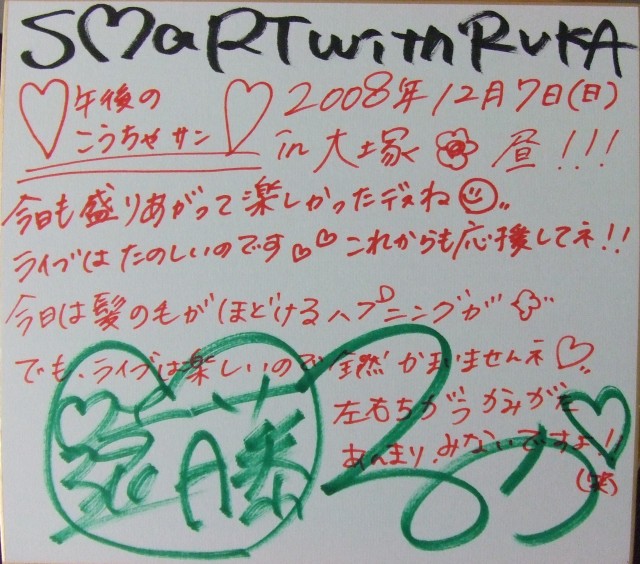 SMaRTwithRUKA
午後の
こうちゃサン
2008年12月7日(日)
in 大塚 昼!!!
今日も盛りあがって楽しかったデスね
ライブはたのしいのです これからも応援してネ!!
今日は髪の毛がほどけるハプニングが
でも、ライブは楽しいので全然かまいませんネ
左もちがうかみがた
あんまり、みないですよ!!
(笑)
遠藤
るか